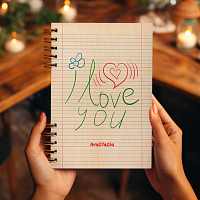 i
love
you
anastasia